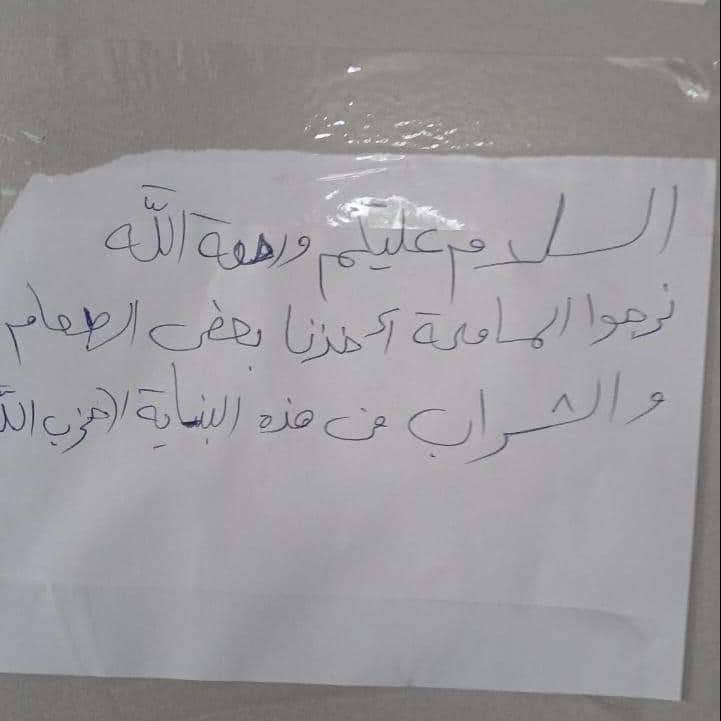 السلام عليكم ورحمة الله
نرجوا المسامحة أخذنا بعض الطعام
والشراب من هذه البناية حزب الله